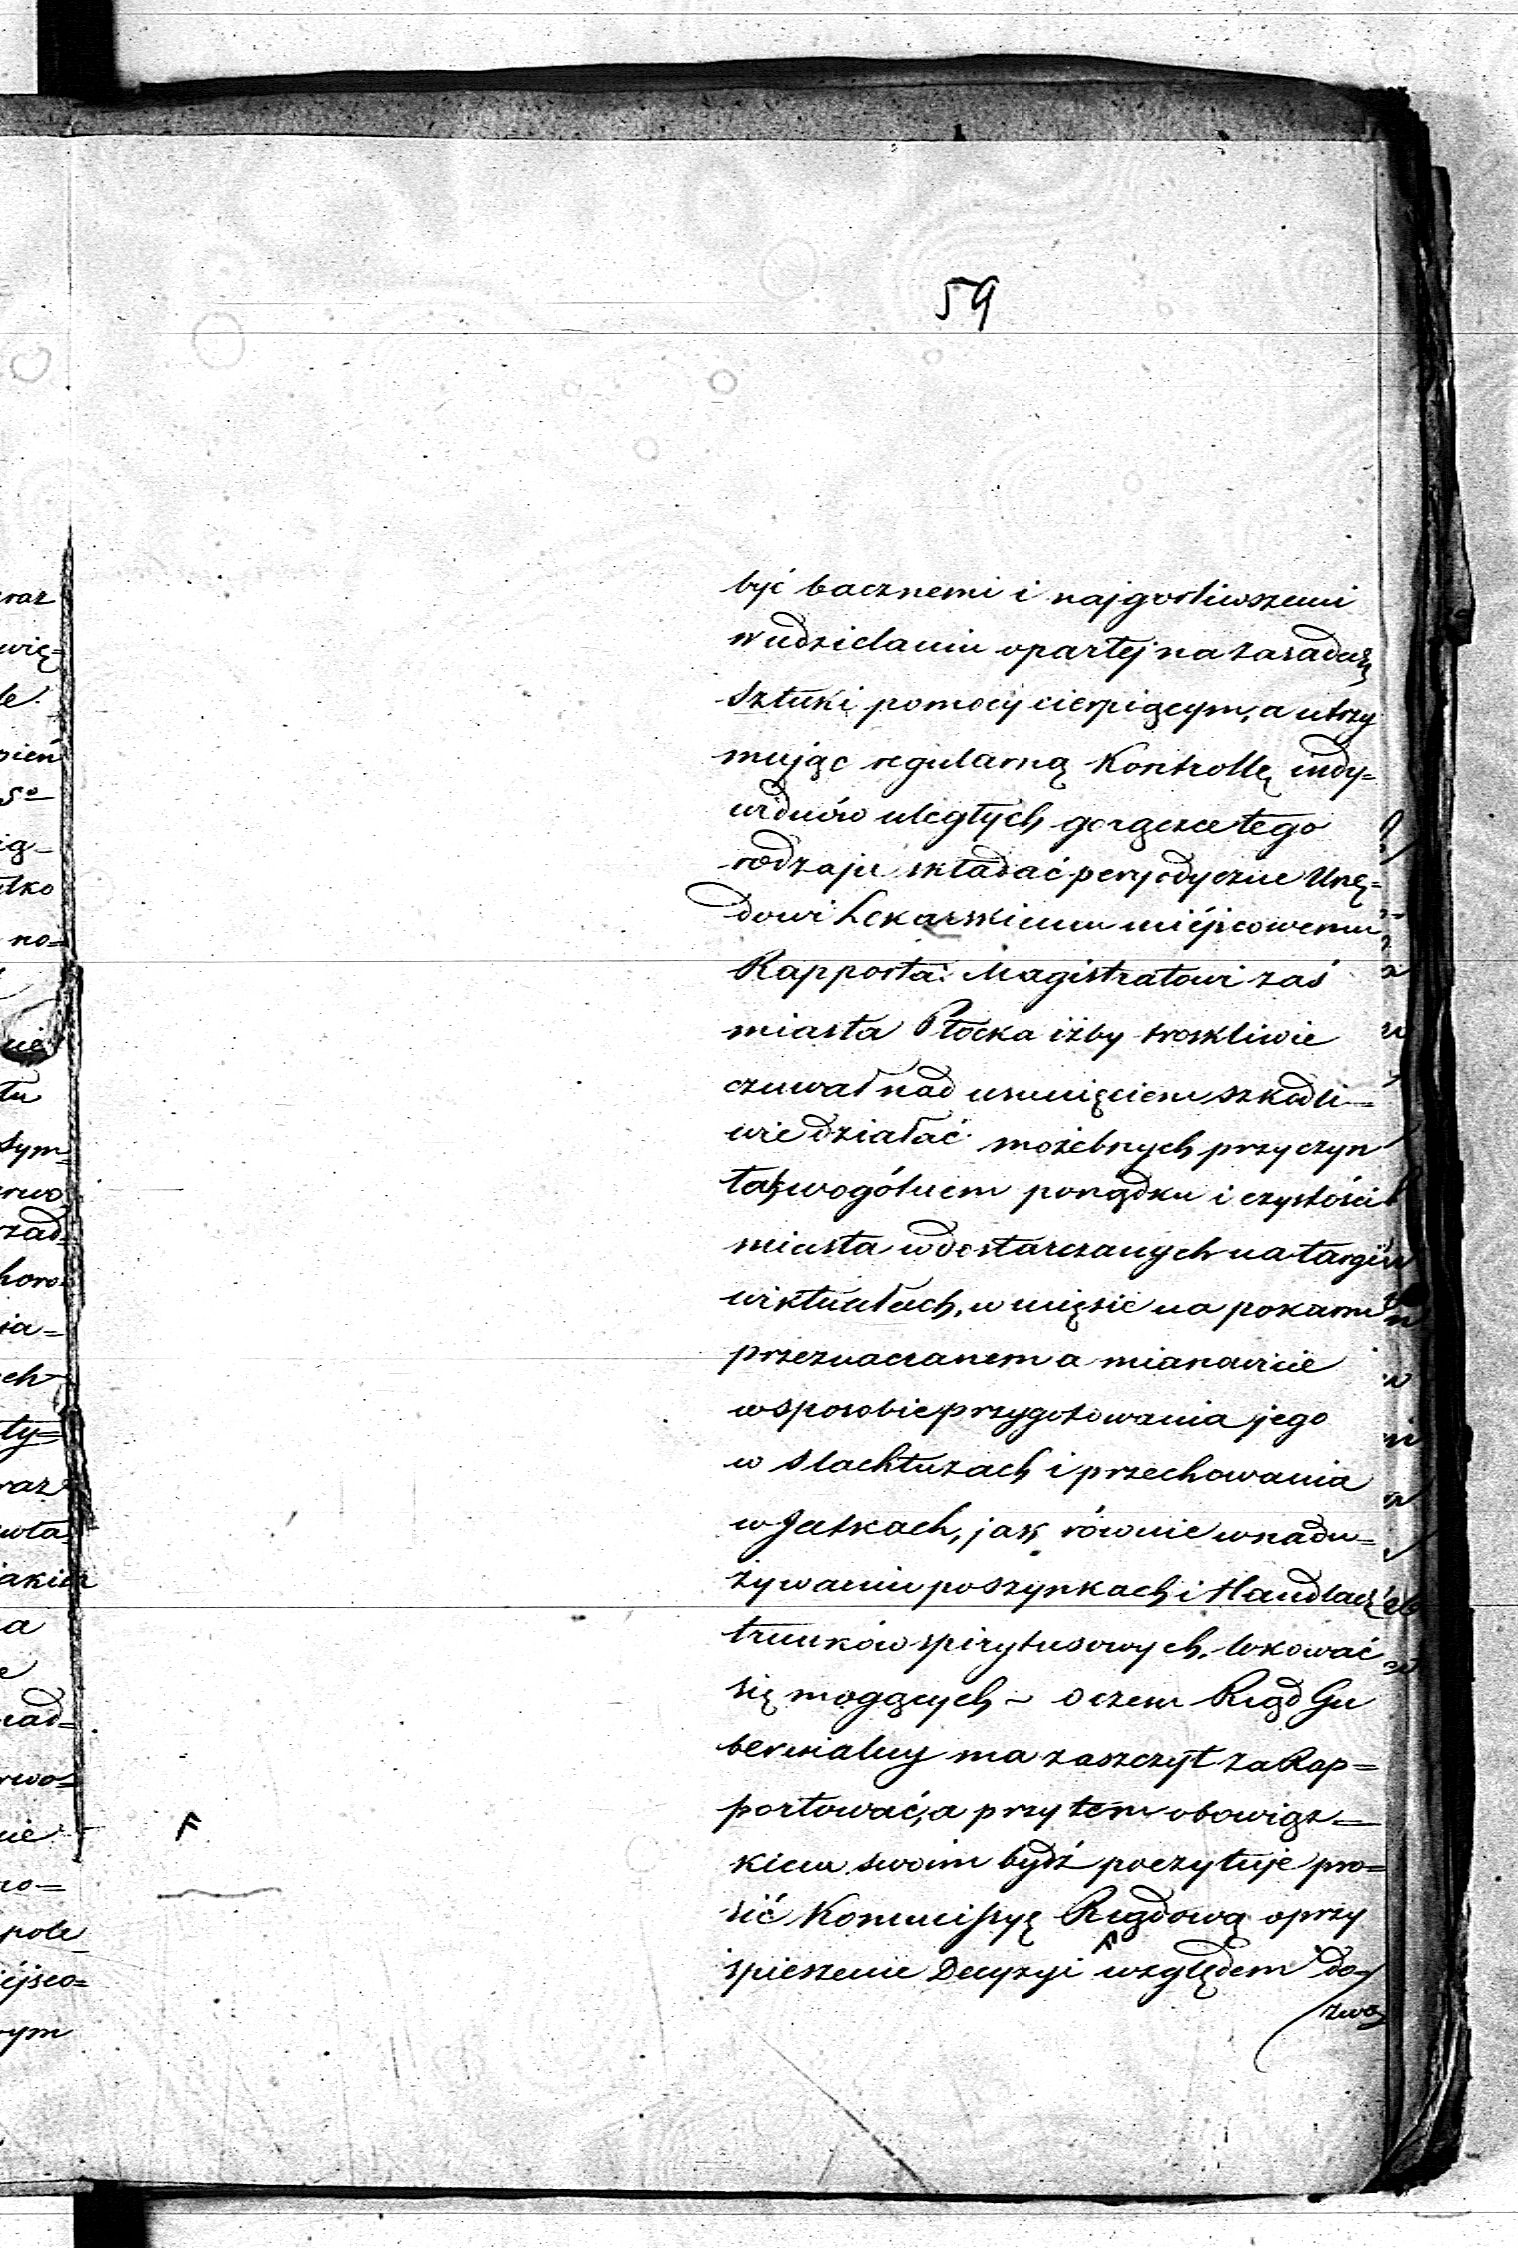 59
być bacznemi i najgorliwszemi
w udzielaniu opartej na zasadach
sztuki pomocy cierpiącym, a utrzy
mując regularną Kontrollę indy=
widuów uległych gorączce tego
rodzaju składać peryodycznie Urzę=
dowi Lekarskiemu miéjscowemu
Rapporta: Magistratowi zaś
miasta Płocka iżby troskliwie
czuwał nad usunięciem szkodli=
wie działać możebnych przyczyn
tak w ogólnem porządku i czystości
miasta w dostarczanych na targi
wiktuałach, w mięsie na pokarm
przeznaczanem a mianowicie
w sposobie przygotowania jego
w Slachtuzach i przechowania
w Jatkach, jak równie w nadu=
żywaniu po szynkach i Handlach
trunków spirytusowych lokować
się mogących ~ O czem Rząd Gu
bernialny ma zaszczyt zaRap=
portować, a przytem obowiąz=
kiem swoim bydź poczytuje pro=
sić Kommissyę Rządową o przy
śpieszenie Decyzyi F względem do=
zwo
F
raz
wię=
le
pień
5o
ig=
tko
no=
nie
tu
sym=
rwo
rzad=
horo=
ia=
ech
ty=
raz
wła
iakich
a
e
zad=
rwo=
nie
ro=
pole
iéjsco=
rym